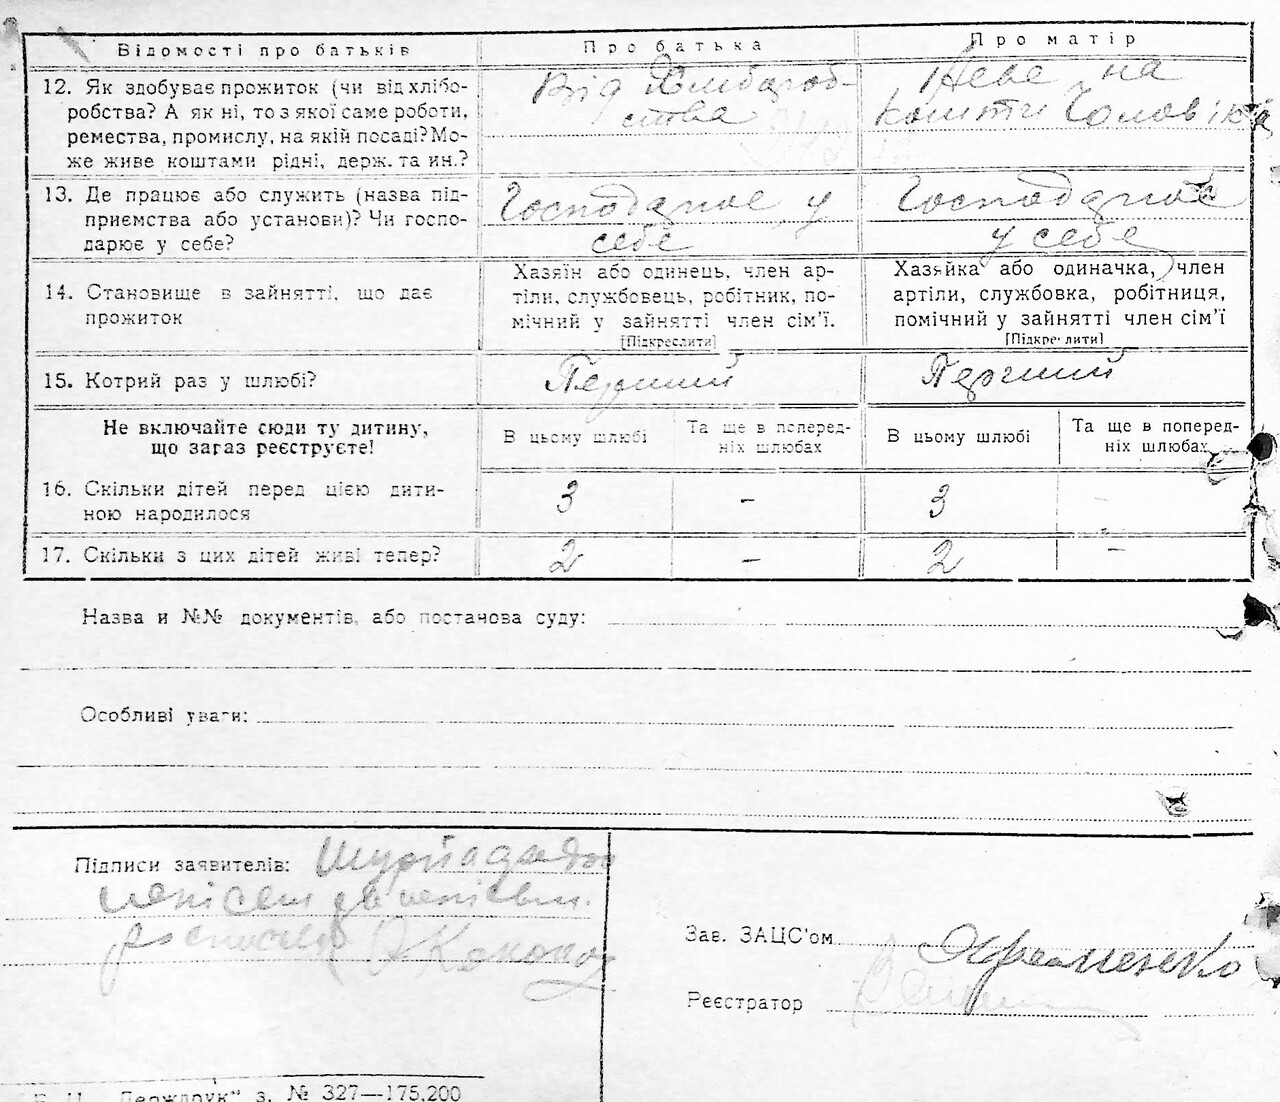 Відомості про батьків Про батька Про матір
12. Як здобуває прожиток (чи від хлібо-
робства? А як ні, то з якої саме роботи,
ремества, промислу, на якій посаді? Мо-
же живе коштами рідні, держ. та ин.?
Від Хлібороб-
ства
Живе на
кошти Чоловіка
13. Де працює або служить (назва під-
приємства або установи)? Чи госпо-
дарює у себе?
Господарює у
себе
Господарює
у себе
14. Становище в зайнятті, що дає
прожиток
Хазяїн або одинець, член ар-
тіли, службовець, робітник, по-
мічний у зайнятті член сім'ї.
[Підкреслити]
Хазяйка або одиначка, член
артіли, службовка, робітниця,
помічний у зайнятті член сім'ї
[Підкреслити]
15. Котрий раз у шлюбі? Перший Перший
Не включайте сюди ту дитину,
що загаз реєструєте!
В цьому шлюбі
Та ще в поперед-
ніх шлюбах
В цьому шлюбі
Та ще в поперед-
ніх шлюбах
16. Скільки дітей перед цією дити-
ною народилося
3 - 3 -
17. Скільки з цих дітей живі тепер? 2 - 2 -
Назва и №№ документів, або постанова суду:
Особливі уваги:
Підписи заявителів:
Зав. ЗАЦС'ом
Реєстратор
"Держдрук" з. № 327—175.200